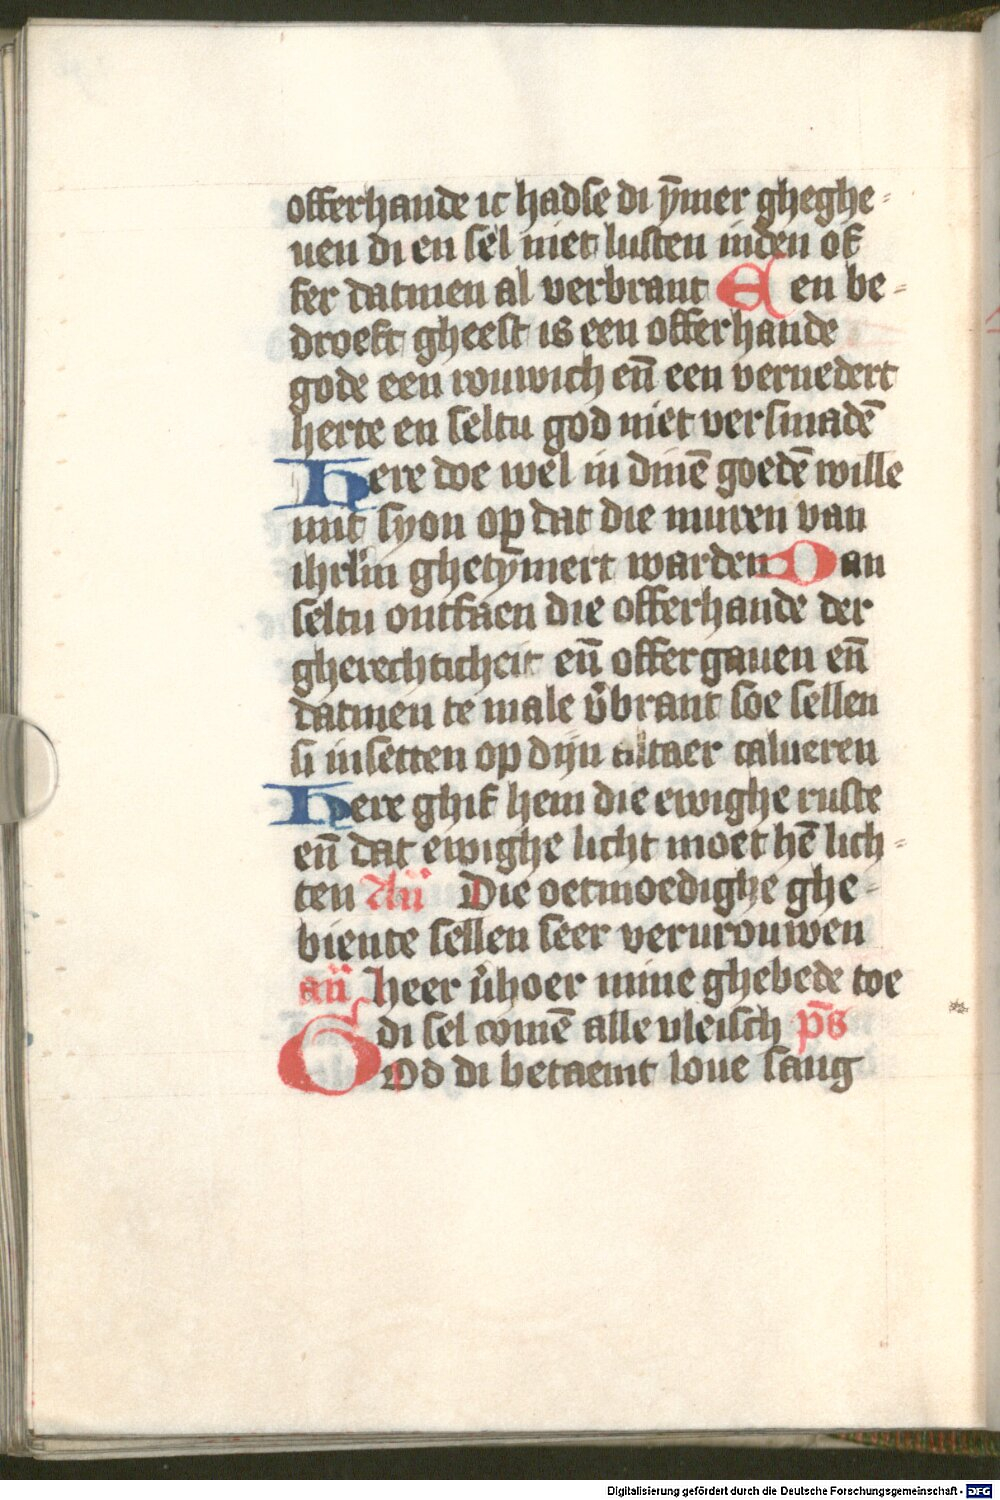 offerhande ic hadse di ȳmer gheghe-
uen di en sel niet lusten inden of
fer datmen al verbrant Een be-
droeft gheest is een offerhande
gode een rouwich en̄ een vernedert
herte en seltu god niet versmadē
Here doe wel in dinē goedē wille
mit syon op dat die muren van
ihrl̄m ghetȳmert warden Dan
seltu ontfaen die offerhande der
gherechticheit en̄ offergauen en̄
datmen te male v̓brant soe sellen
si insetten op dijn altaer calueren
Here ghif hem die ewighe ruste
en̄ dat ewighe licht moet hē lich-
ten Die oetmoedighe ghe-
biente sellen seer verurouwen
heer v̓hoer mine ghebede toe
di sel comē alle vleisch p̄s
God di betaemt loue sang
Digitalisierung gefördert durch die Deutsche Forschungsgemeinschaft - DFG